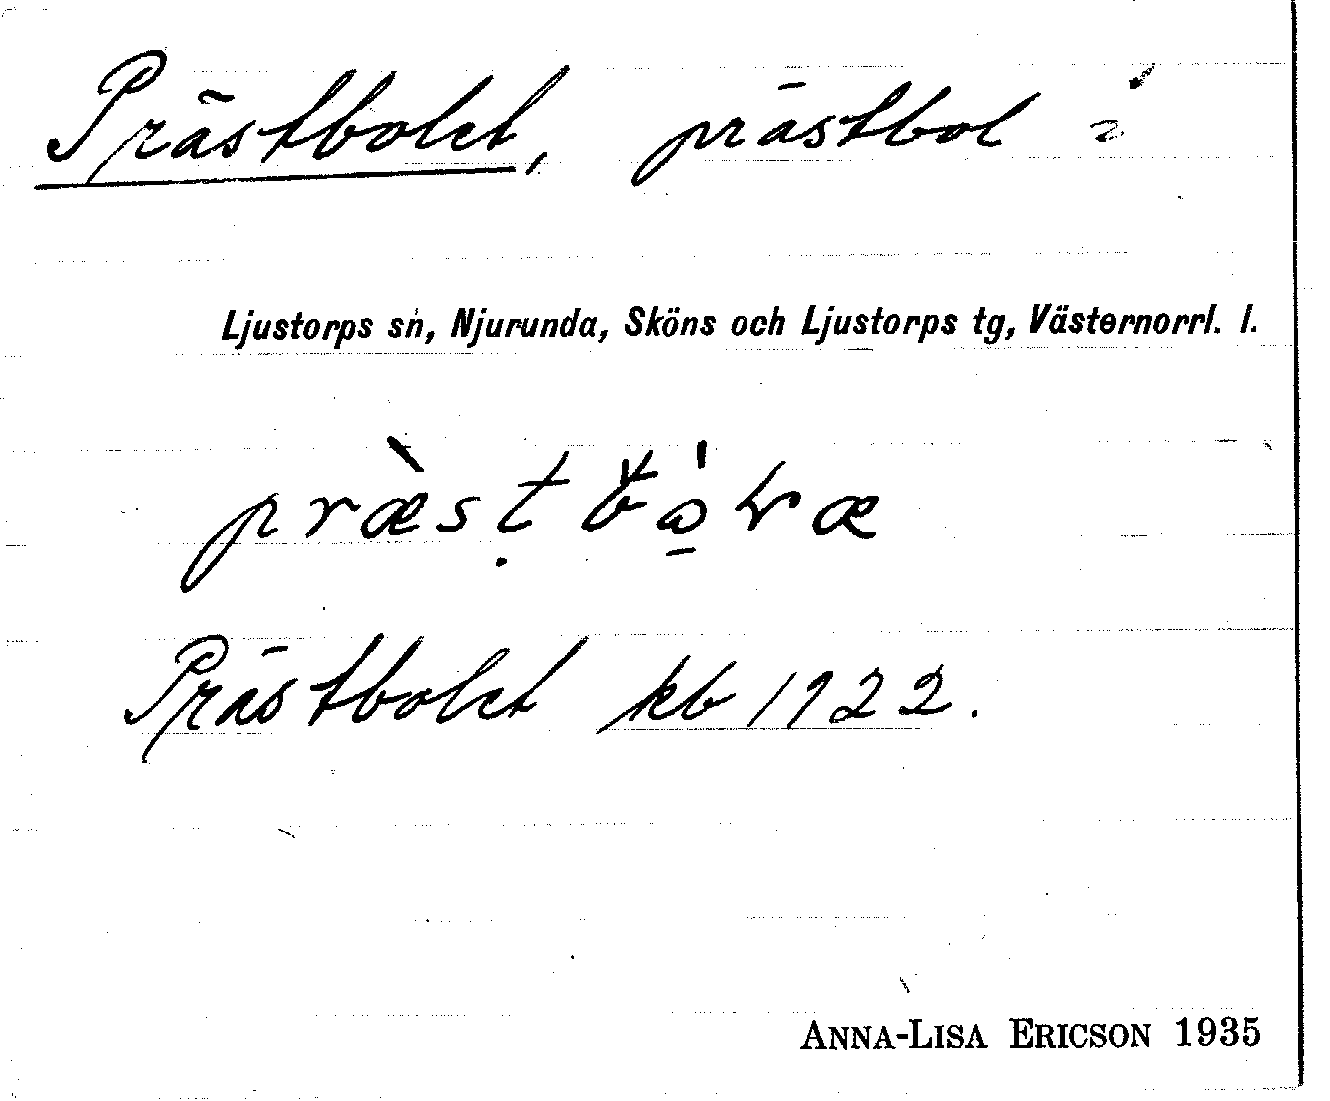 Prästbolet, prästbol i
Ljustorps sn, Njurunda, Sköns och Ljustorps tg, Västernorrl. l.
Prästbolet kb 1922.
ANNA-LISA ERICSON 1935